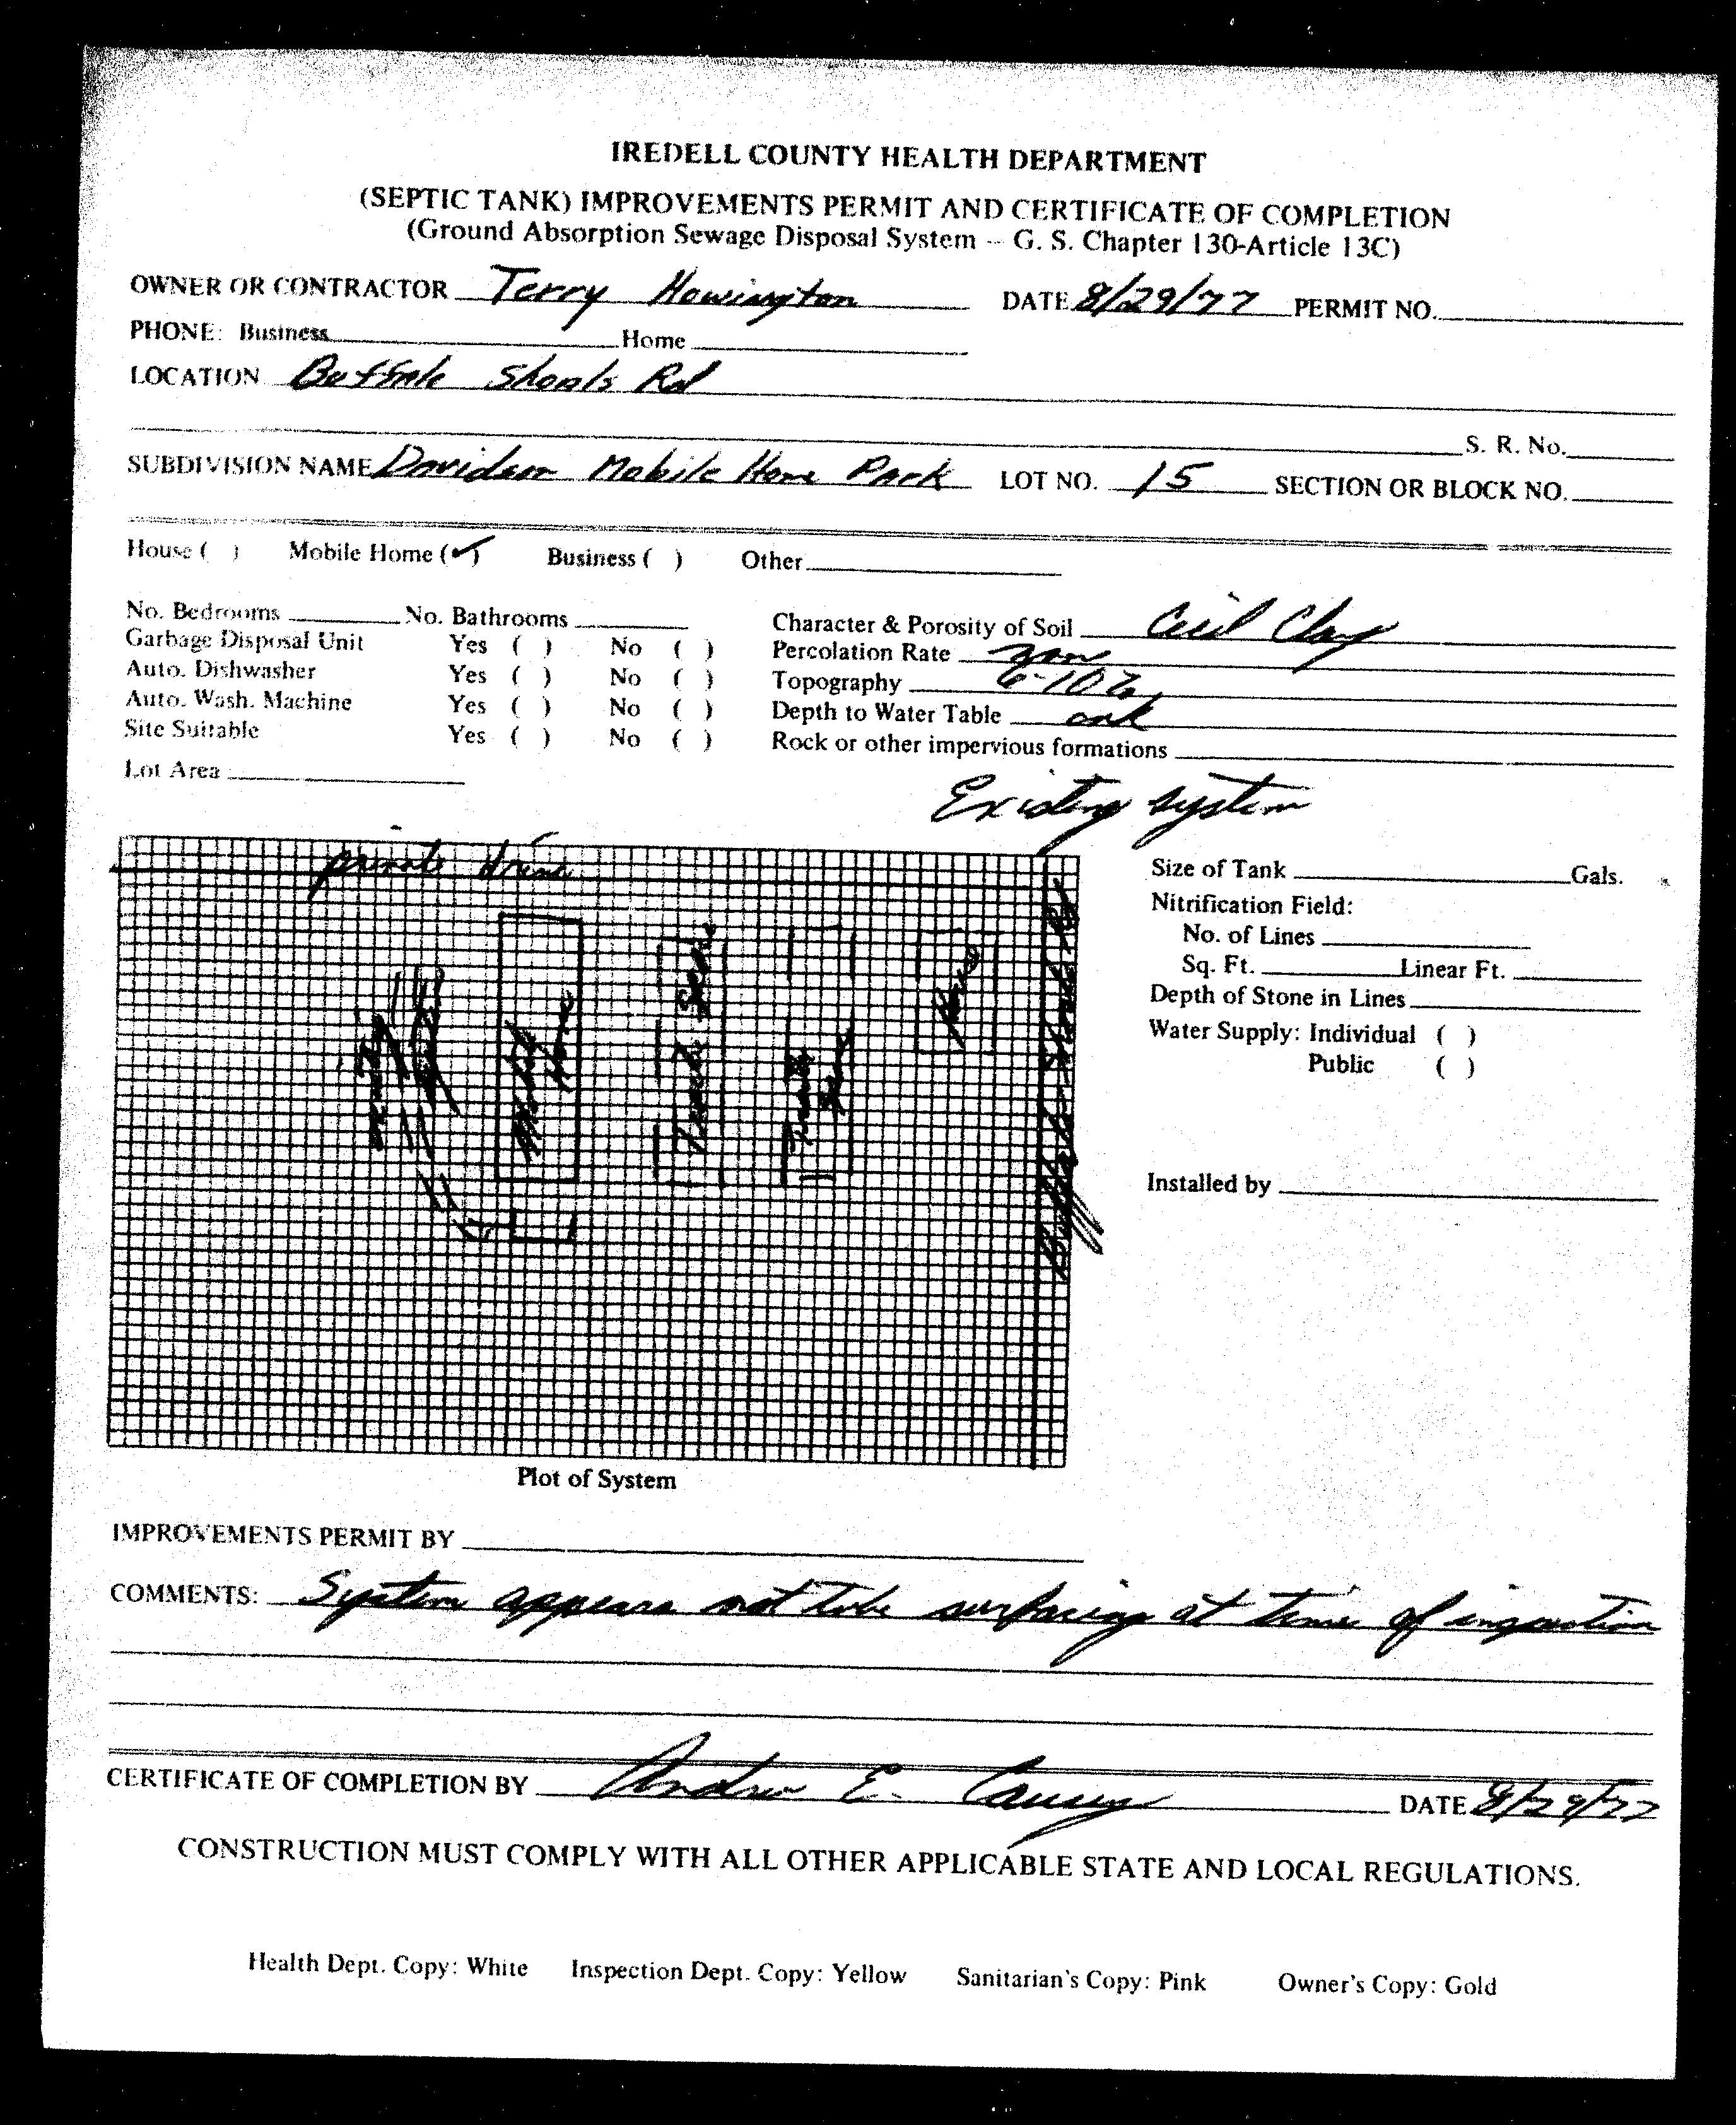 IREDELL COUNTY HEALTH DEPARTMENT
(SEPTIC TANK) IMPROVEMENTS PERMIT AND CERTIFICATE OF COMPLETION
(Ground Absorption Sewage Disposal System -- G. S. Chapter 130-Article 13C)
OWNER OR CONTRACTOR Terry Howington DATE 8/29/77 PERMIT NO.
PHONE: Business Home
LOCATION Buffalo Shoals Rd
S. R. No.
SUBDIVISION NAME Davidson Mobile Home Park LOT NO. 15 SECTION OR BLOCK NO.
House ( ) Mobile Home (✓) Business ( ) Other
No. Bedrooms No. Bathrooms Character & Porosity of Soil Cecil Clay
Garbage Disposal Unit Yes ( ) No ( ) Percolation Rate
Auto. Dishwasher Yes ( ) No ( ) Topography 6-10%
Auto. Wash. Machine Yes ( ) No ( ) Depth to Water Table
Site Suitable Yes ( ) No ( ) Rock or other impervious formations
Lot Area
Existing system
private drive
Mobile Home
House
Buffalo Shoals Rd
Size of Tank Gals.
Nitrification Field:
No. of Lines
Sq. Ft. Linear Ft.
Depth of Stone in Lines
Water Supply: Individual ( )
Public ( )
Installed by
Plot of System
IMPROVEMENTS PERMIT BY
COMMENTS: System appears not to be surfacing at time of inspection
CERTIFICATE OF COMPLETION BY Andrew E. Causey DATE 8/29/77
CONSTRUCTION MUST COMPLY WITH ALL OTHER APPLICABLE STATE AND LOCAL REGULATIONS.
Health Dept. Copy: White Inspection Dept. Copy: Yellow Sanitarian's Copy: Pink Owner's Copy: Gold